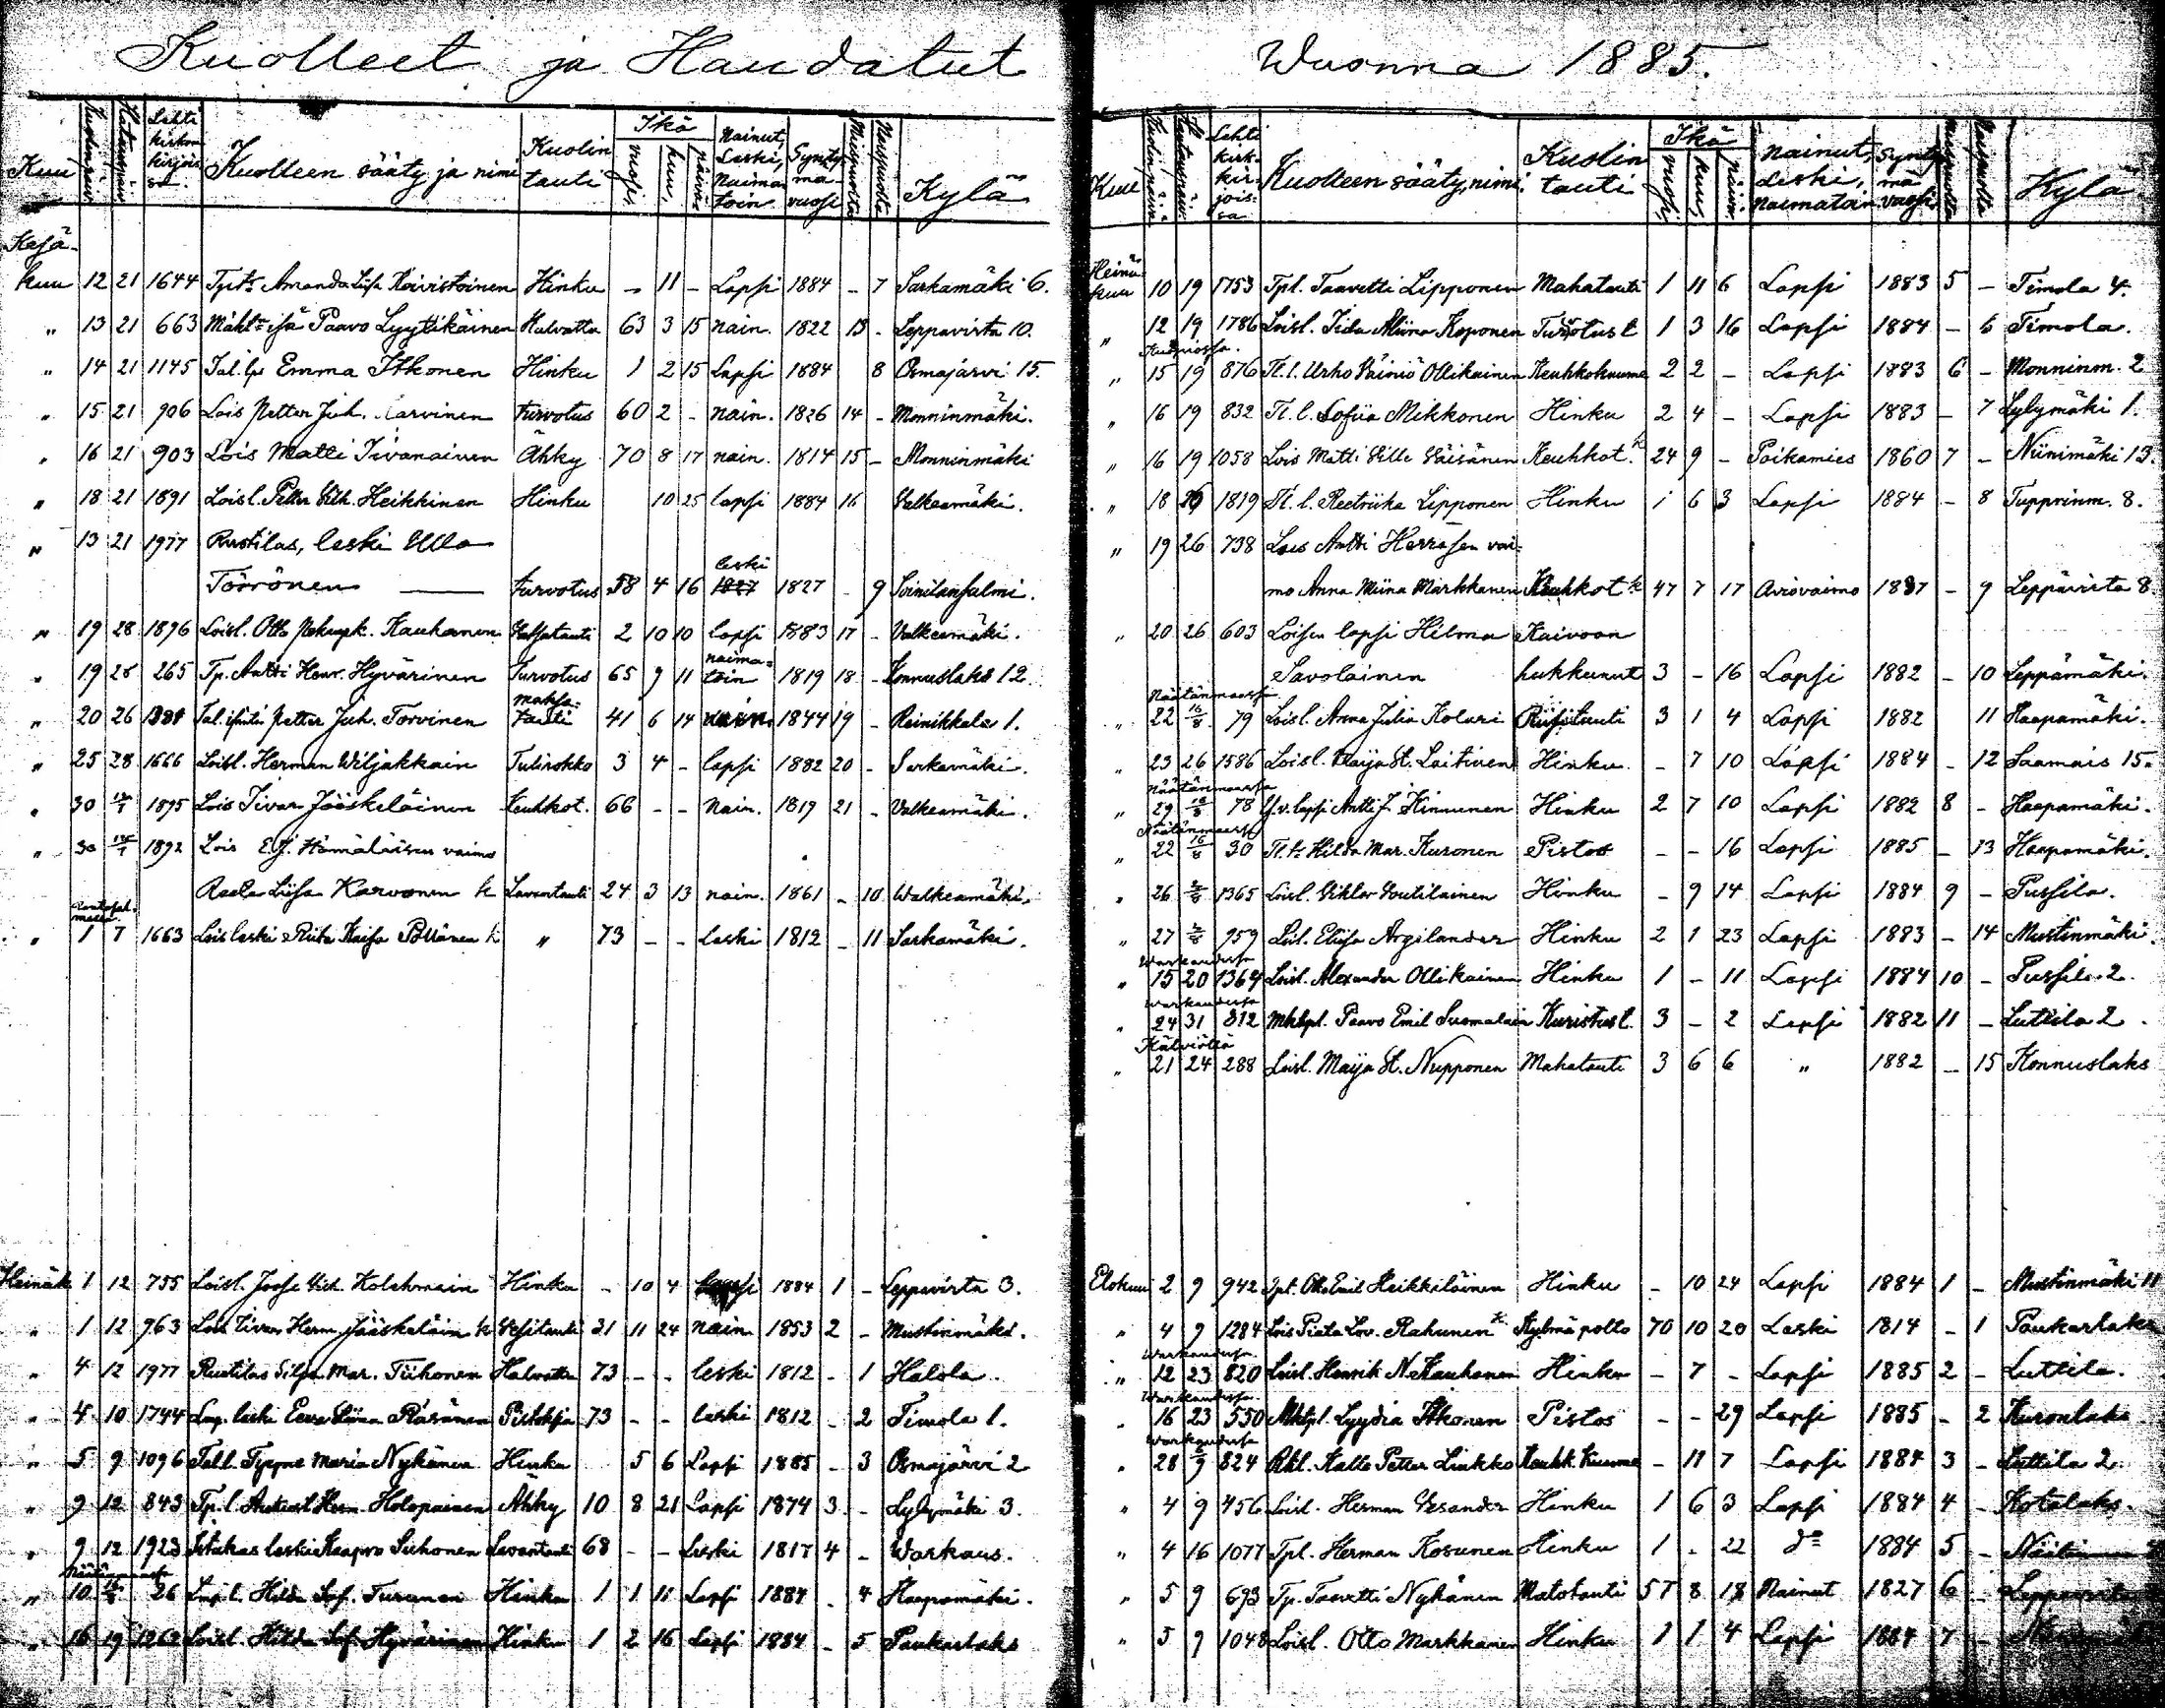 Kuolleet ja Haudatut
Kuu Kuolinpäiv. Hautauspäiv. Lehti kirkon kirjois sa. Kuolleen sääty ja nimi Kuolin tauti Ikä vuosi, kuu, päivä. Nainut, Leski, Naima toin Synty mä- vuosi Miespuolta Naispuolta Kylä
Kesä-
kuu 12 21 1644 Amanda Liisa Koivistoinen Hinku - 11 - Lapsi 1884 - 7 Sarkamäki 6.
" 13 21 663 Paavo Lyytikäinen Halvattu 63 3 15 nain. 1822 13 - Leppävirta 10.
" 14 21 1145 Tal. lp Emma Itkonen Hinku 1 2 15 Lapsi 1884 8 Osmajärvi 15.
" 15 21 906 Lois Petter Juh. Karvinen turvotus 60 2 - nain. 1826 14 - Monninmäki.
" 16 21 903 Lois Matti Iivanainen Ähky 70 8 17 nain. 1814 15 - Monninmäki
" 18 21 1891 Loisl. Petter Vilh. Heikkinen Hinku 10 25 lapsi 1884 16 Valkeamäki.
" 13 21 1977 Rustitas, leski Ulla
leski
Törrönen turvotus 58 4 16 1827 1827 - 9 Soinilansalmi.
" 19 28 1896 Loisl. Otto Kauhanen Vatsatauti 2 10 10 lapsi 1883 17 - Valkeamäki.
naima=
" 19 28 265 Tp. Antti Henr. Hyvärinen Turvotus 65 9 11 toin 1819 18 - Konnuslaks 12.
maksa-
" 20 26 Petter Juh. Torvinen tauti 41 6 14 nain. 1844 19 - Reinikkala 1.
" 25 28 1666 Loisl. Herman Wiljakkain Tulirokko 3 4 - lapsi 1882 20 - Sarkamäki.
" 30 12/7 1895 Lois Iivar Jääskeläinen Keuhkot. 66 - - Nain. 1819 21 - Valkeamäki.
" 30 12/7 1892 Lois E.J. Hämäläisen vaimo
Liisa Karvonen k Lavantauti 24 3 13 nain. 1861 - 10 Walkeamäki.
" 1 7 1663 Lois leski Riita Kaisa Pöllänen k " 73 - - Leski 1812 - 11 Sarkamäki.
Heinäk 1 12 755 Loisl. Joose Vilh. Kolehmain Hinku - 10 4 Lapsi 1884 1 - Leppävirta 3.
" 1 12 963 Lois Iivar Herm. Jääskeläin k Vesitauti 31 11 24 nain 1853 2 - Mustinmäki.
" 4 12 1977 Rustitas Silja Mar. Tiihonen Halvattu 73 - - leski 1812 - 1 Halola.
" 4 10 1744 leski Eeva Stiina Räsänen Pistoksia 73 - - leski 1812 - 2 Timola 1.
" 5 9 1096 Tal.l. Maria Nykänen Hinku 5 6 Lapsi 1885 - 3 Osmajärvi 2
" 9 12 843 Tp. l. Herm. Holopainen Ähky 10 8 21 Lapsi 1874 3 - Lylymäki 3.
" 9 12 1923 leski Kaapro Suhonen Lavantauti 68 - - Leski 1817 4 - Warkaus.
" 10 26 Hilda Sof. Turunen Hinku 1 1 11 Lapsi 1884 - 4 Haapamäki.
" 16 19 1262 Loisl. Hilda Sof. Hyvärinen Hinku 1 2 16 Lapsi 1884 - 5 Paukarlaks
Wuonna 1885.
Kuu Kuolinpäiv. Hautauspäiv. Lehti kirk- kir- jois- sa Kuolleen sääty, nimi Kuolin tauti Ikä vuosi, kuu, päivä. nainut, Leski, naimatoin synty mä vuosi, Miespuolta Naispuolta Kylä
Heinä-
kuu 10 19 1753 Tpl. Taavetti Lipponen Mahatauti 1 11 6 Lapsi 1883 5 - Timola 4.
" 12 19 1786 Loisl. Iida Miina Koponen Turvotust 1 3 16 Lapsi 1884 - 6 Timola.
Kuopiossa.
" 15 19 876 Tl. l. Urho Väinö Ollikainen Keuhkokuume 2 2 - Lapsi 1883 6 - Monninm. 2
" 16 19 832 Tl. l. Sofiia Mikkonen Hinku 2 4 - Lapsi 1883 - 7 Lylymäki 1.
" 16 19 1058 Lois Matti Ville Väisänen Keuhkot. k 24 9 - Poikamies 1860 7 - Niinimäki 13.
" 18 26 1819 Tl. l. Reetriika Lipponen Hinku 1 6 3 Lapsi 1884 - 8 Tupprinm. 8.
" 19 26 738 Lois Antti Herrasen vai-
mo Anna Miina Markkanen Keuhkot k 47 7 17 Aviovaimo 1837 - 9 Leppävirta 8
" 20 26 603 Loisen lapsi Hilma Kaivoon
Savolainen hukkunut 3 - 16 Lapsi 1882 - 10 Leppämäki.
Näätänmaassa
" 22 16/8 79 Loisl. Anna Julia Kolari Riisitauti 3 1 4 Lapsi 1882 11 Haapamäki.
" 23 26 1586 Loisl. Maija St. Laitinen Hinku - 7 10 Lapsi 1884 - 12 Saamais 15.
Näätänmaassa
" 29 16/8 78 lapsi Antti J. Kinnunen Hinku 2 7 10 Lapsi 1882 8 - Haapamäki.
Näätänmaassa
" 22 16/8 30 Hilda Mar. Kuronen Pistos - - 16 Lapsi 1885 - 13 Haapamäki.
" 26 2/8 1365 Loisl. Viktor Voutilainen Hinku - 9 14 Lapsi 1884 9 - Pussila.
" 27 2/8 959 Loisl. Eliisa Argilander Hinku 2 1 23 Lapsi 1883 - 14 Mustinmäki.
Warkaudessa
" 15 20 1364 Loisl. Alexander Ollikainen Hinku 1 - 11 Lapsi 1884 10 - Pussila 2.
Warkaudessa
" 24 31 812 Paavo Emil Suomalain Kuristust. 3 - 2 Lapsi 1882 11 - Luttila 2.
Kälviältä
" 21 24 288 Loisl. Maija St. Nupponen Mahatauti 3 6 6 " 1882 - 15 Konnuslaks
Elokuu 2 9 942 Otto Emil Heikkiläinen Hinku - 10 24 Lapsi 1884 1 - Mustinmäki 11
" 4 9 1284 Lois Piata Lov. Rahunen k. Kylmä poltto 70 10 20 Leski 1814 - 1 Paukarlaks
Warkaudessa.
" 12 23 820 Loisl. Henrik N. Kauhanen Hinku - 7 - Lapsi 1885 2 - Luttila.
Warkaudessa.
" 16 23 550 Lyydia Itkonen Pistos - - 29 Lapsi 1885 - 2 Kuronlaks
Warkaudessa
" 28 9 824 Kalle Petter Liukko Keuhk. Kuume - 11 7 Lapsi 1884 3 - Luttila 2.
" 4 9 456 Loisl. Herman Vesander Hinku 1 6 3 Lapsi 1884 4 - Kotalaks.
" 4 16 1077 Tpl. Herman Kosunen Hinku 1 - 22 do 1884 5 -
" 5 9 693 Tp. Taavetti Nykänen Matotauti 57 8 18 Nainut 1827 6 - Leppävirta
" 5 9 1048 Loisl. Otto Markkanen Hinku 1 1 4 Lapsi 1884 7 -